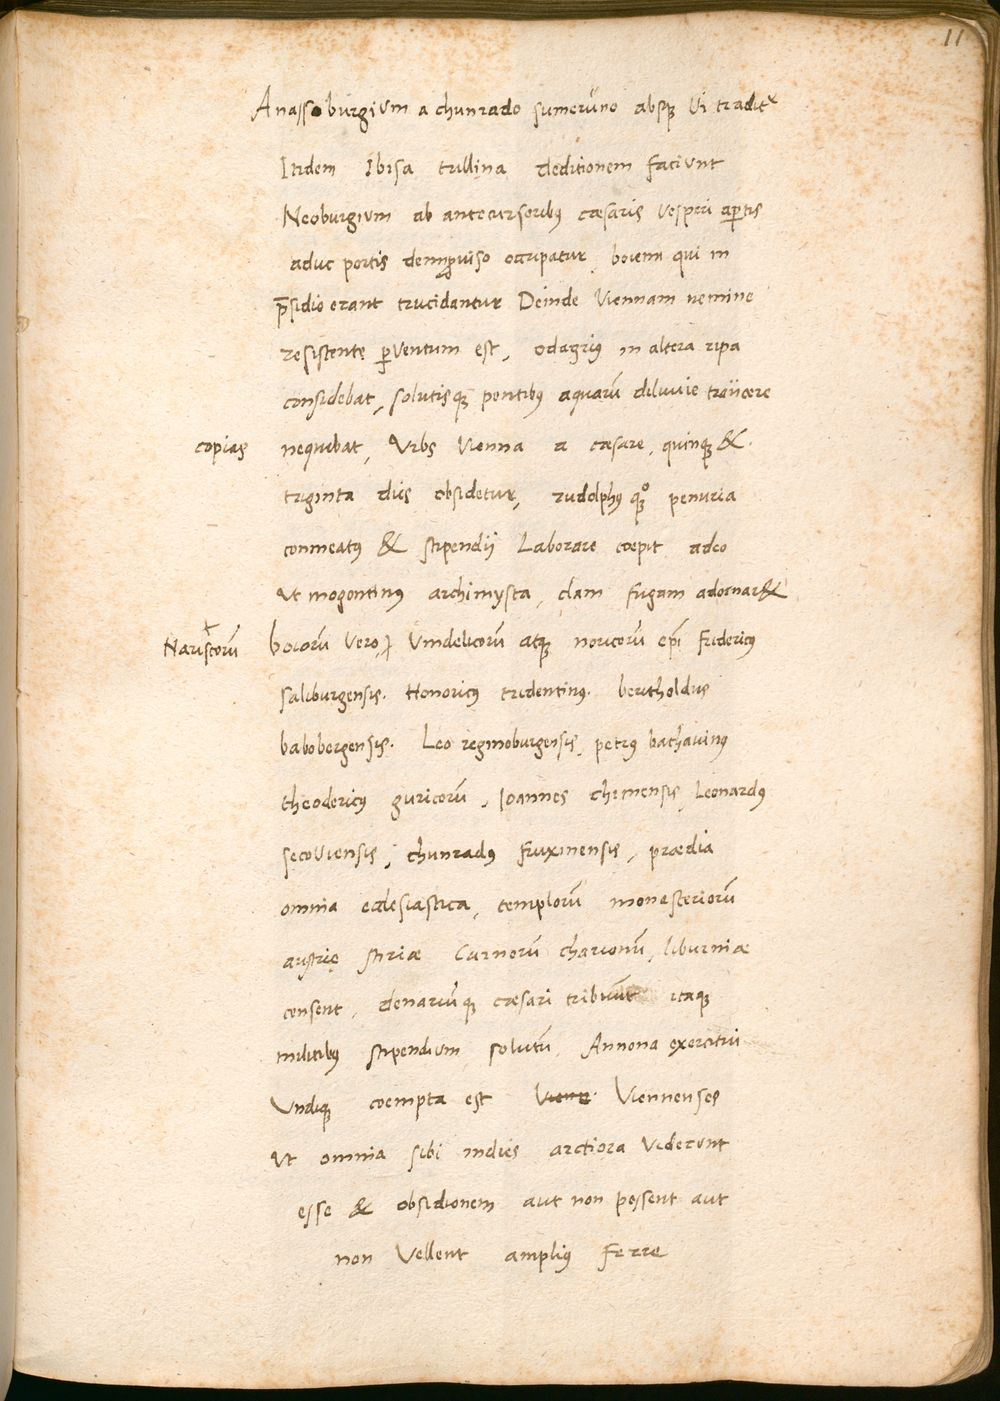 11
Anassoburgium a chunrado sumerūno absqꝫ vi tradit᷑
Itidem Ibisa trillina deditionem faciunt
Neoburgium ab antecursoribꝰ cæsaris vesperi aꝑtis
aduc portis deimꝓuiso occupatur, boiem qui in
p̄sidio erant trucidantur Deinde Viennam nemine
resistente ꝑventum est, odagriꝰ in altera ripa
considebat, solutisqꝫ pontibꝰ aquarū diluvie traiicere
copias nequibat, Vrbs Vienna a cæsare, quinqꝫ &
triginta diis obsidetur, rudolphꝰ qꝫͦ penuria
conmeatꝰ & stipendij Laborare cœpit adeo
ut mogontinꝰ archimysta, clam fugam adornar&
Nariscorū boiorū vero, Vindelicorū atqꝫ noricorū ep̄i fridericꝰ
saliburgensis. Honoricꝰ tridentinꝰ. bertholdus
babobergensis. Leo reginoburgensis, petrꝰ bathavinꝰ
theodericꝰ guricorū, Ioannes chimensis, Leonardꝰ
secoviensis, chunradꝰ fruxinensis, prædia
omnia ecclesiastica, templorū monasteriorū
austrię stiriæ Carnorū charionū, liburniæ
censent, denariūqꝫ cæsari tribuūt itaqꝫ
militibꝰ stipendium solutū, Annona exercitui
Vndiqꝫ coempta est Viene Viennenses
ut omnia sibi indies arctiora viderunt
esse & obsidionem aut non possent aut
non Vellent ampliꝰ ferre